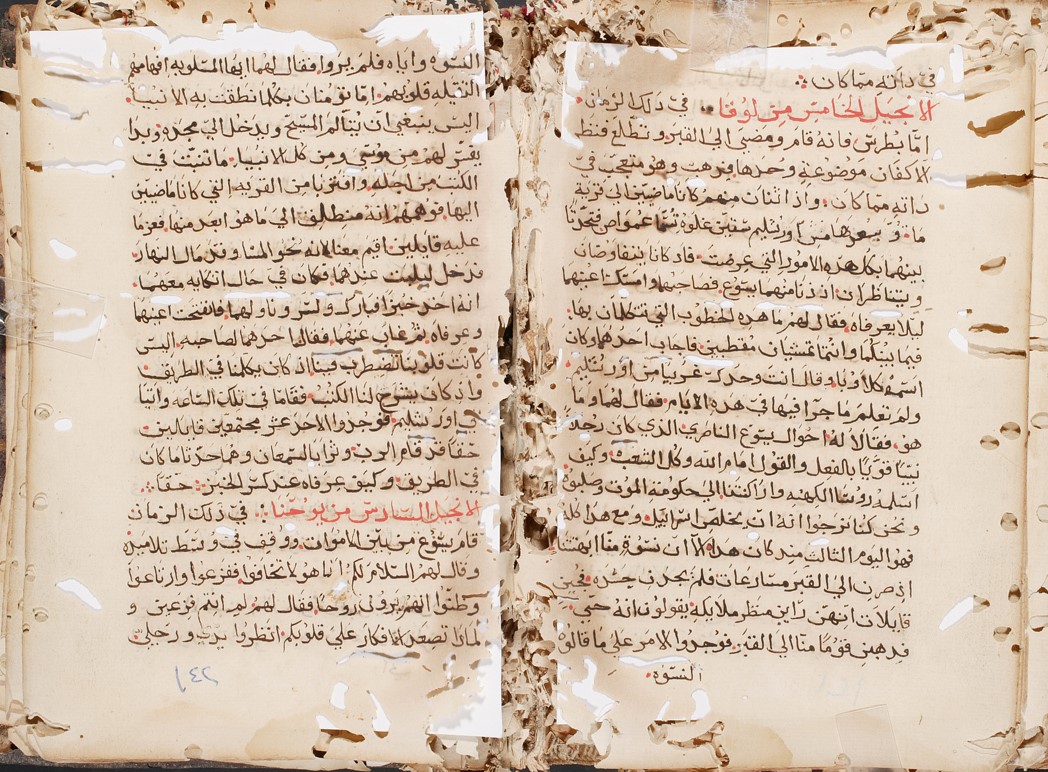 في ذاته مما كان :
الانجيل الخامس من لوقا .. في ذلك الزمان
امّا بطرس فانه قام ومضى الى القبر وتطلع فنظر
الاكفان موضوعه وحدها فبرهت وهو متعجب في
ذاته مما كان واذا اثنان منهم كانا ماضيين الى قرية
اورشليم ستين غلوه تسمّا عمواص فتحدثا
بينهما بكل هذه الامور التي عرضت فاذ كانا يتفاوضان
ويتناظران اذ دنا منهما يسوع فصاحبهما وامسكت اعينهما
ليلا يعرفاه فقال لهم ما هذه الخطوب التي تتكلمان بها
فيما بينكما وانتما تمشيان مقطبين فاجاب احدهما وكان
اسمه كلاوبا وقال انت وحدك غريبا من اورشليم
ولم تعلم ما جرا فيها في هذه الايام فقال لهما وما
هو فقالا له احوال يسوع الناصري الذي كان رجلا
نبيّا قويّا بالفعل والقول امام الله وكل الشعب وكيف
اسلمه روسا الكهنه واراكنتنا الى حكومة الموت وصلبوه
ونحن كنا نرجوا انه ان يخلص اسرائيل ومع هذا كله
فهو اليوم الثالث منذ كان هذا الا ان نسوة منّا ابهتننا
اذ صرن الى القبر مسارعات فلم يجدن جسده فجين
قايلات انهن راين منظر ملايكه يقولون انه حي
فذهب قومًا منّا الى القبر فوجدوا الامر على ما قالوه
النسوه
النسوه واياه فلم يروا فقال لهما ايها المسلوبه افهامهم
الثقيله قلوبهم امّا تومنان بكلما نطقت به الانبيا
اليس ينبغي ان يتالم المسيح ويدخل الى مجده وبدا
يفسر لهم من موسى ومن كل الانبيا ما ثبت في
الكتب من اجله واقتربا من القريه التي كانا ماضيين
اليها فوهمهم انه منطلق الى ما هو ابعد منها فعزما
عليه قايلين اقم معنا لانه نحو المسا وقد مال النهار
فدخل ليلبث عندهما فكان في حال اتكايه معهما
انه اخذ خبزا فبارك وكسر وناولهما فانفتحت اعينهما
وعرفاه ثم غاب عنهما فقال احدهما لصاحبه اليس
كانت قلوبنا تضطرب فينا اذ كان يكلمنا في الطريق
واذ كان يشرح لنا الكتب فقاما في تلك الساعه واتيا
الى اورشليم فوجدوا الاحد عشر مجتمعين قايلين
حقا قد قام الرب وترايا لسمعان وهما حدثا ما كان
في الطريق وكيف عرفاه عند كسر الخبز حقا :
الانجيل السادس من يوحنا .. في ذلك الزمان
قام يسوع من بين الاموات ووقف في وسط تلاميذه
وقال لهم السلام لكم انا هو لا تخافوا ففزعوا وارتاعوا
وظنوا انهم يرون روحًا فقال لهم لم انتم فزعين و
لماذا تصعد الافكار على قلوبكم انظروا يدي ورجلي
١٤٢